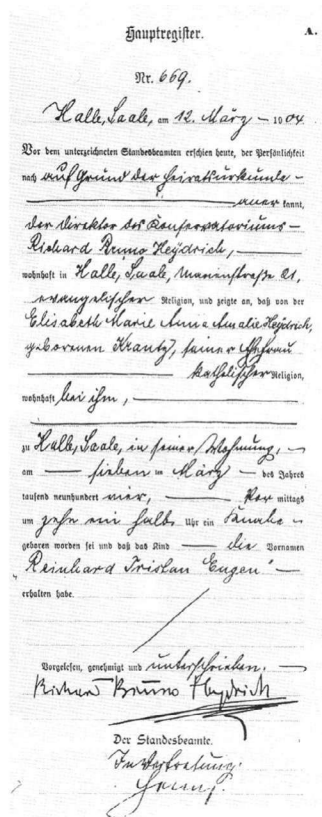 Hauptregister.
A.
Nr. 669.
Halle, Saale, am 12. März – 1904
Vor dem unterzeichneten Standesbeamten erschien heute, der Persönlichkeit
nach auf Grund der Heiratsurkunde –
anerkannt,
der Direktor des Konservatoriums –
Richard Bruno Heydrich,
wohnhaft in Halle, Saale, Marienstraße 21,
evangelischer Religion, und zeigte an, daß von der
Elisabeth Marie Anna Amalie Heydrich,
geborenen Krantz, seiner Ehefrau
katholischer Religion,
wohnhaft bei ihm,
zu Halle, Saale, in seiner Wohnung,
am sieben ten März des Jahres
tausend neunhundert vier, Vor mittags
um zehn ein halb Uhr ein Knabe
geboren worden sei und daß das Kind die Vornamen
„Reinhard Tristan Eugen“
erhalten habe.
Vorgelesen, genehmigt und unterschrieben.
Richard Bruno Heydrich
Der Standesbeamte.
In Vertretung.